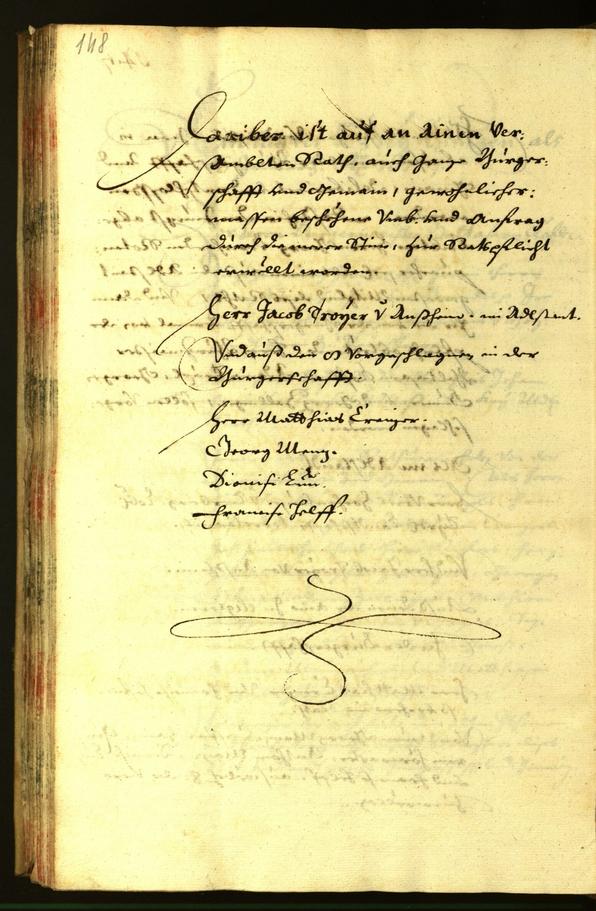 148
Darüber ist auf an ainen Ver:
sambleten Rath, auch ganze Burger:
schafft und Gemain, gewohnlicher:
massen beschehene Umb: und Anfrag
durch die merer Stim, zur Ratspflicht
erwöllt worden.
Herr Jacob Troyer v Außhem. im Adlstant.
Und auß den 8 vorgeschlagnen in der
Burgerschafft.
Herr Matthias Creizer.
Georg Menz.
Dionisi
Francisc Helff.